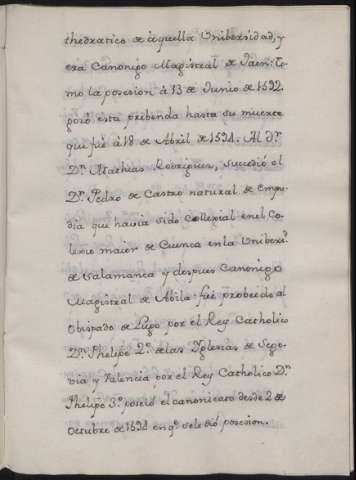 thedratico de aquella Unibersidad, y
era Canonigo Magistral de Jaen: to-
mo la posesion à 13 de Junio de 1592.
gozó esta prebenda hasta su muerte
que fué à 18 de Abril de 1594. Al Dr.
Dn. Mathias Rodriguez, sucedió el
Dr. Pedro de Castro natural de Ampu-
dia que havia sido Collexial en el Co-
lexio maior de Cuenca en la Unibersd.
de Salamanca y despues Canonigo
Magistral de Abila fué probeido al
Obispado de Lugo por el Rey Catholico
Dn. Phelipe 2º. de las Yglesias de Sego-
via y Valencia por el Rey Catholico Dn.
Phelipe 3º. poseió el canonicato desde 2 de
Octubre de 1594 en q.e se le dió posesion.